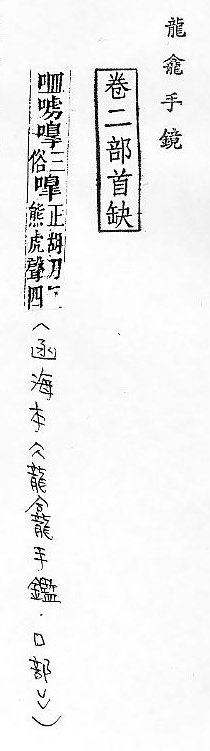 龍龕手鏡
卷二部首缺
三俗嘷正胡刀熊虎聲四（函海本《龍龕手鑑·口部》）